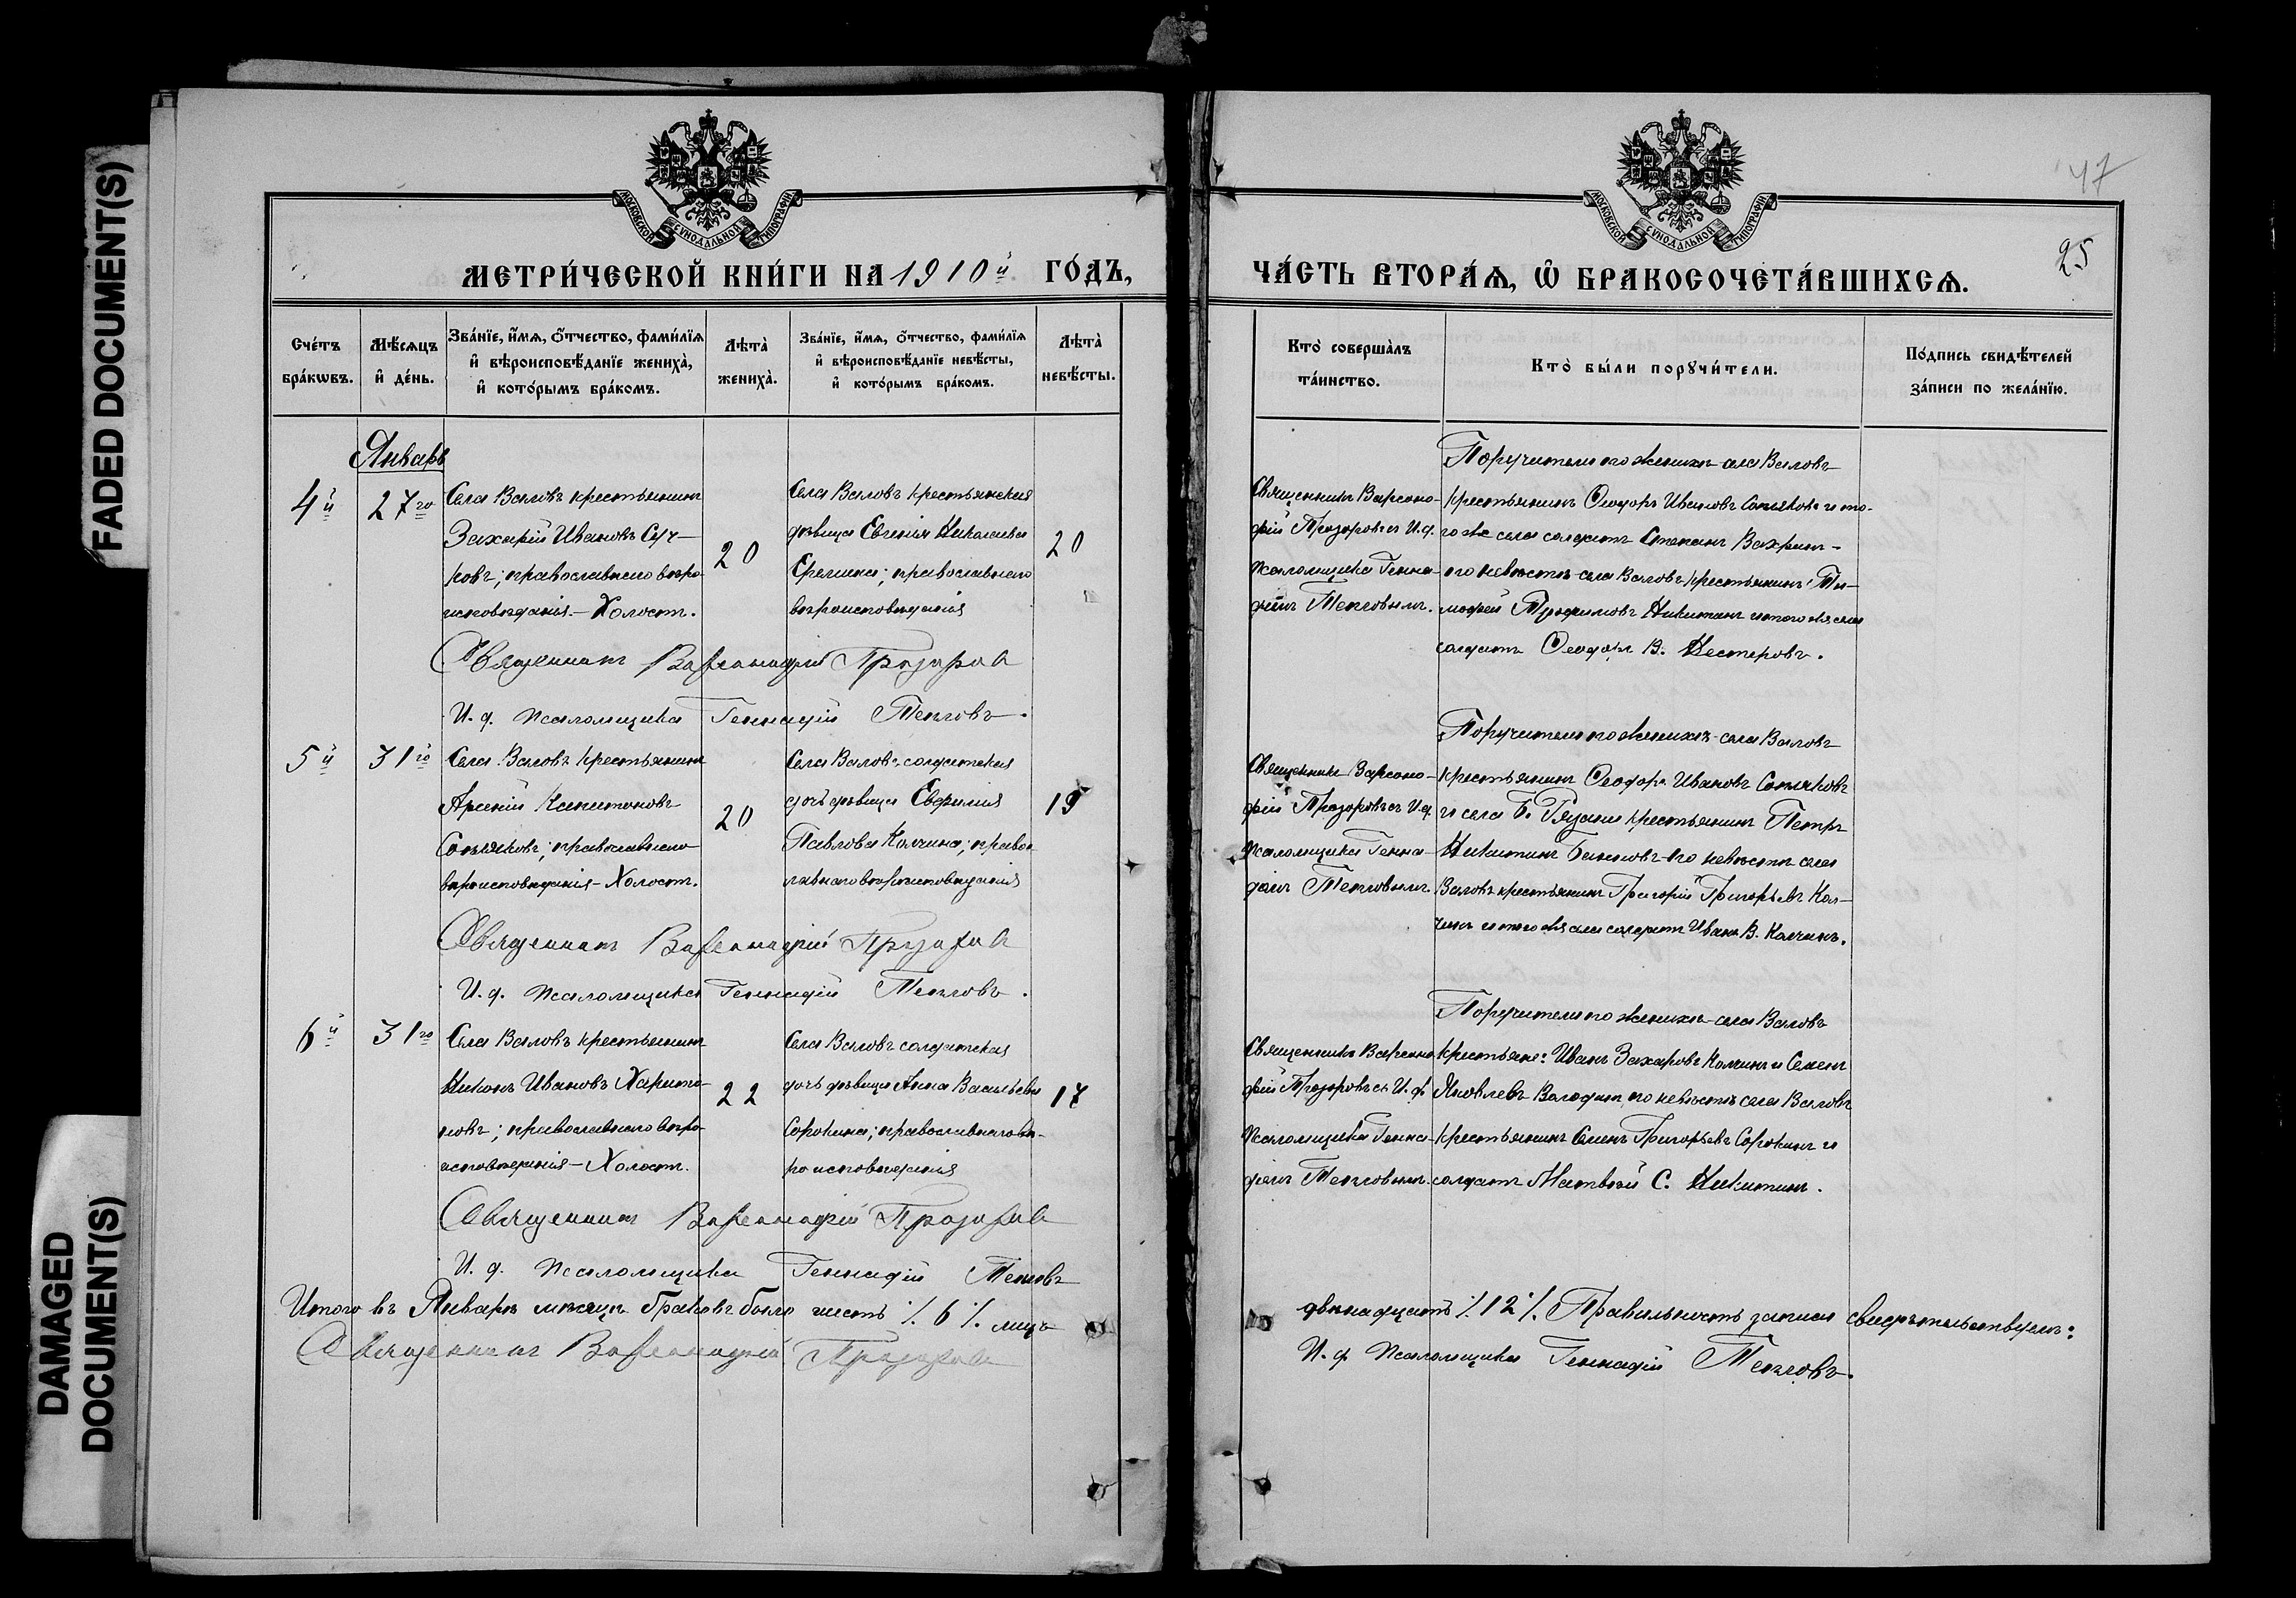 FADED DOCUMENT(S)
DAMAGED
DOCUMENT(S)
МОСКОВСКОЙ СѴНОДАЛЬНОЙ ТИПОГРАФІИ
МЕТРИ́ЧЕСКОЙ КНИ́ГИ НА 1910й ГО́ДЪ,
Сче́тъ бра́кѡвъ.
Мѣ́сяцъ и҆ де́нь.
Зва́нїе, и҆́мѧ, ѻ҆́тчество, фами́лїѧ
и҆ вѣроисповѣ́данїе жениха̀,
и҆ кото́рымъ бра́комъ.
Лѣта̀ жениха̀.
Зва́нїе, и҆́мѧ, ѻ҆́тчество, фами́лїѧ
и҆ вѣроисповѣ́данїе невѣ́сты,
и҆ кото́рымъ бра́комъ.
Лѣта̀ невѣ́сты.
Январь
4й
27го
Села Валовъ крестьянинъ
Захарій Ивановъ
ковъ; православнаго вѣро-
исповѣданія – Холостъ.
20
Села Валовъ крестьянская
дѣвица Евгенія Николаева
православнаго
вѣроисповѣданія
20
Священникъ Варсонофій Прозоровъ
И. д. псаломщика Геннадій Тепловъ.
5й
31го
Села Валовъ крестьянинъ
Арсеній Капитоновъ
православнаго
вѣроисповѣданія – Холостъ.
20
Села Валовъ солдатская
дочь дѣвица Евфимія
Павлова Калчина; правос-
лавнаго вѣроисповѣданія
19
Священникъ Варсонофій Прозоровъ
И. д. псаломщика Геннадій Тепловъ.
6й
31го
Села Валовъ крестьянинъ
Никонъ Ивановъ Харито-
новъ; православнаго вѣро-
исповѣданія – Холостъ.
22
Села Валовъ солдатская
дочь дѣвица Анна Васильева
Сорокина; православнаго вѣ-
роисповѣданія
17
Священникъ Варсонофій Прозоровъ
И. д. псаломщика Геннадій Тепловъ
Итого въ Январѣ мѣсяцѣ браковъ было шесть ⁒ 6 ⁒ лицъ
Священникъ Варсонофій Прозоровъ
47
25
МОСКОВСКОЙ СѴНОДАЛЬНОЙ ТИПОГРАФІИ
ЧА́СТЬ ВТОРА́Ѧ, Ѡ҆ БРАКОСОЧЕТА́ВШИХСѦ.
Кто̀ соверша̀лъ
та́инство.
Кто̀ бы́ли порꙋчи́тели.
По́дпись свидѣ́телей
за́писи по жела́нїю.
Священникъ Варсоно-
фій Прозоровъ съ И. д.
псаломщика Генна-
діемъ Тепловымъ.
Поручители по женихѣ – села Валовъ
крестьянинъ Ѳеодоръ Ивановъ и то-
го же села солдатъ Степанъ
по невѣстѣ – села Валовъ крестьянинъ Ти-
мофей Трофимовъ Никитинъ и того же села
солдатъ Ѳеодоръ В. Нестеровъ.
Священникъ Варсоно-
фій Прозоровъ съ И. д.
псаломщика Генна-
діемъ Тепловымъ.
Поручители по женихѣ – села Валовъ
крестьянинъ Ѳеодоръ Ивановъ
и села Б. Рязани крестьянинъ Петръ
Никитинъ по невѣстѣ села
Валовъ крестьянинъ Григорій Григорьевъ Кал-
чинъ и того же села солдатъ Иванъ В. Калчинъ.
Священникъ Варсоно-
фій Прозоровъ съ И. д.
псаломщика Генна-
діемъ Тепловымъ.
Поручители по женихѣ – села Валовъ
крестьяне: Иванъ Захаровъ Калчинъ и Семенъ
Яковлевъ Володинъ, по невѣстѣ села Валовъ
крестьянинъ Семенъ Григорьевъ Сорокинъ и
солдатъ Матвѣй С. Никитинъ.
двѣнадцать ⁒ 12 ⁒. Правильность записи свидѣтельствуемъ:
И. д. псаломщика Геннадій Тепловъ.